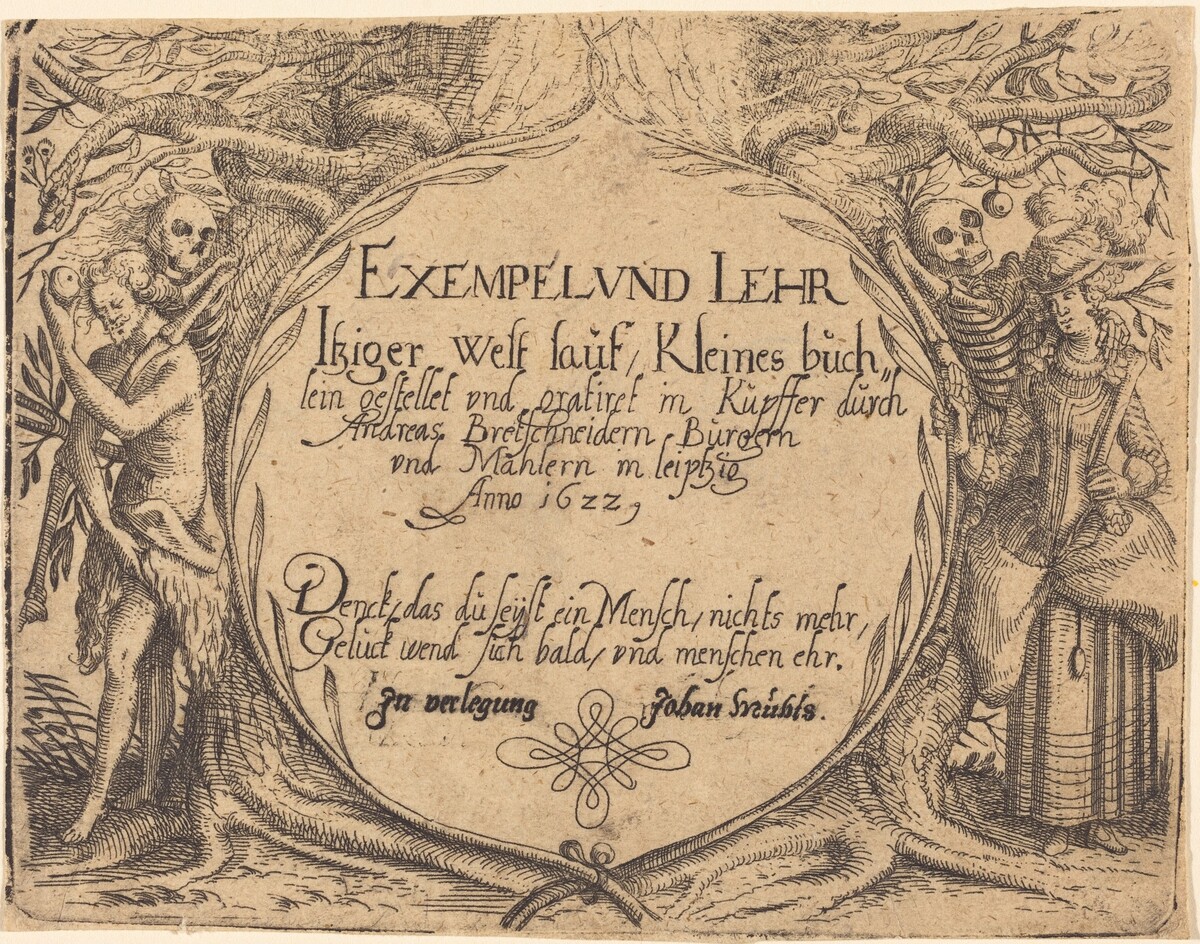 EXEMPEL VND LEHR
Itziger Welt lauf, Kleines büch„
lein gestellet vnd gratiret in Kupffer durch
Andreas Bretschneidern Burgern
vnd Mahlern in leiptzig
Anno 1622,
Denck, das du seÿst ein Mensch, nichts mehr,
Gelück wend sich bald, vnd menschen ehr.
In verlegung Johan